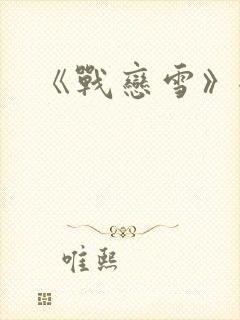 《戰戀雪》
唯熙